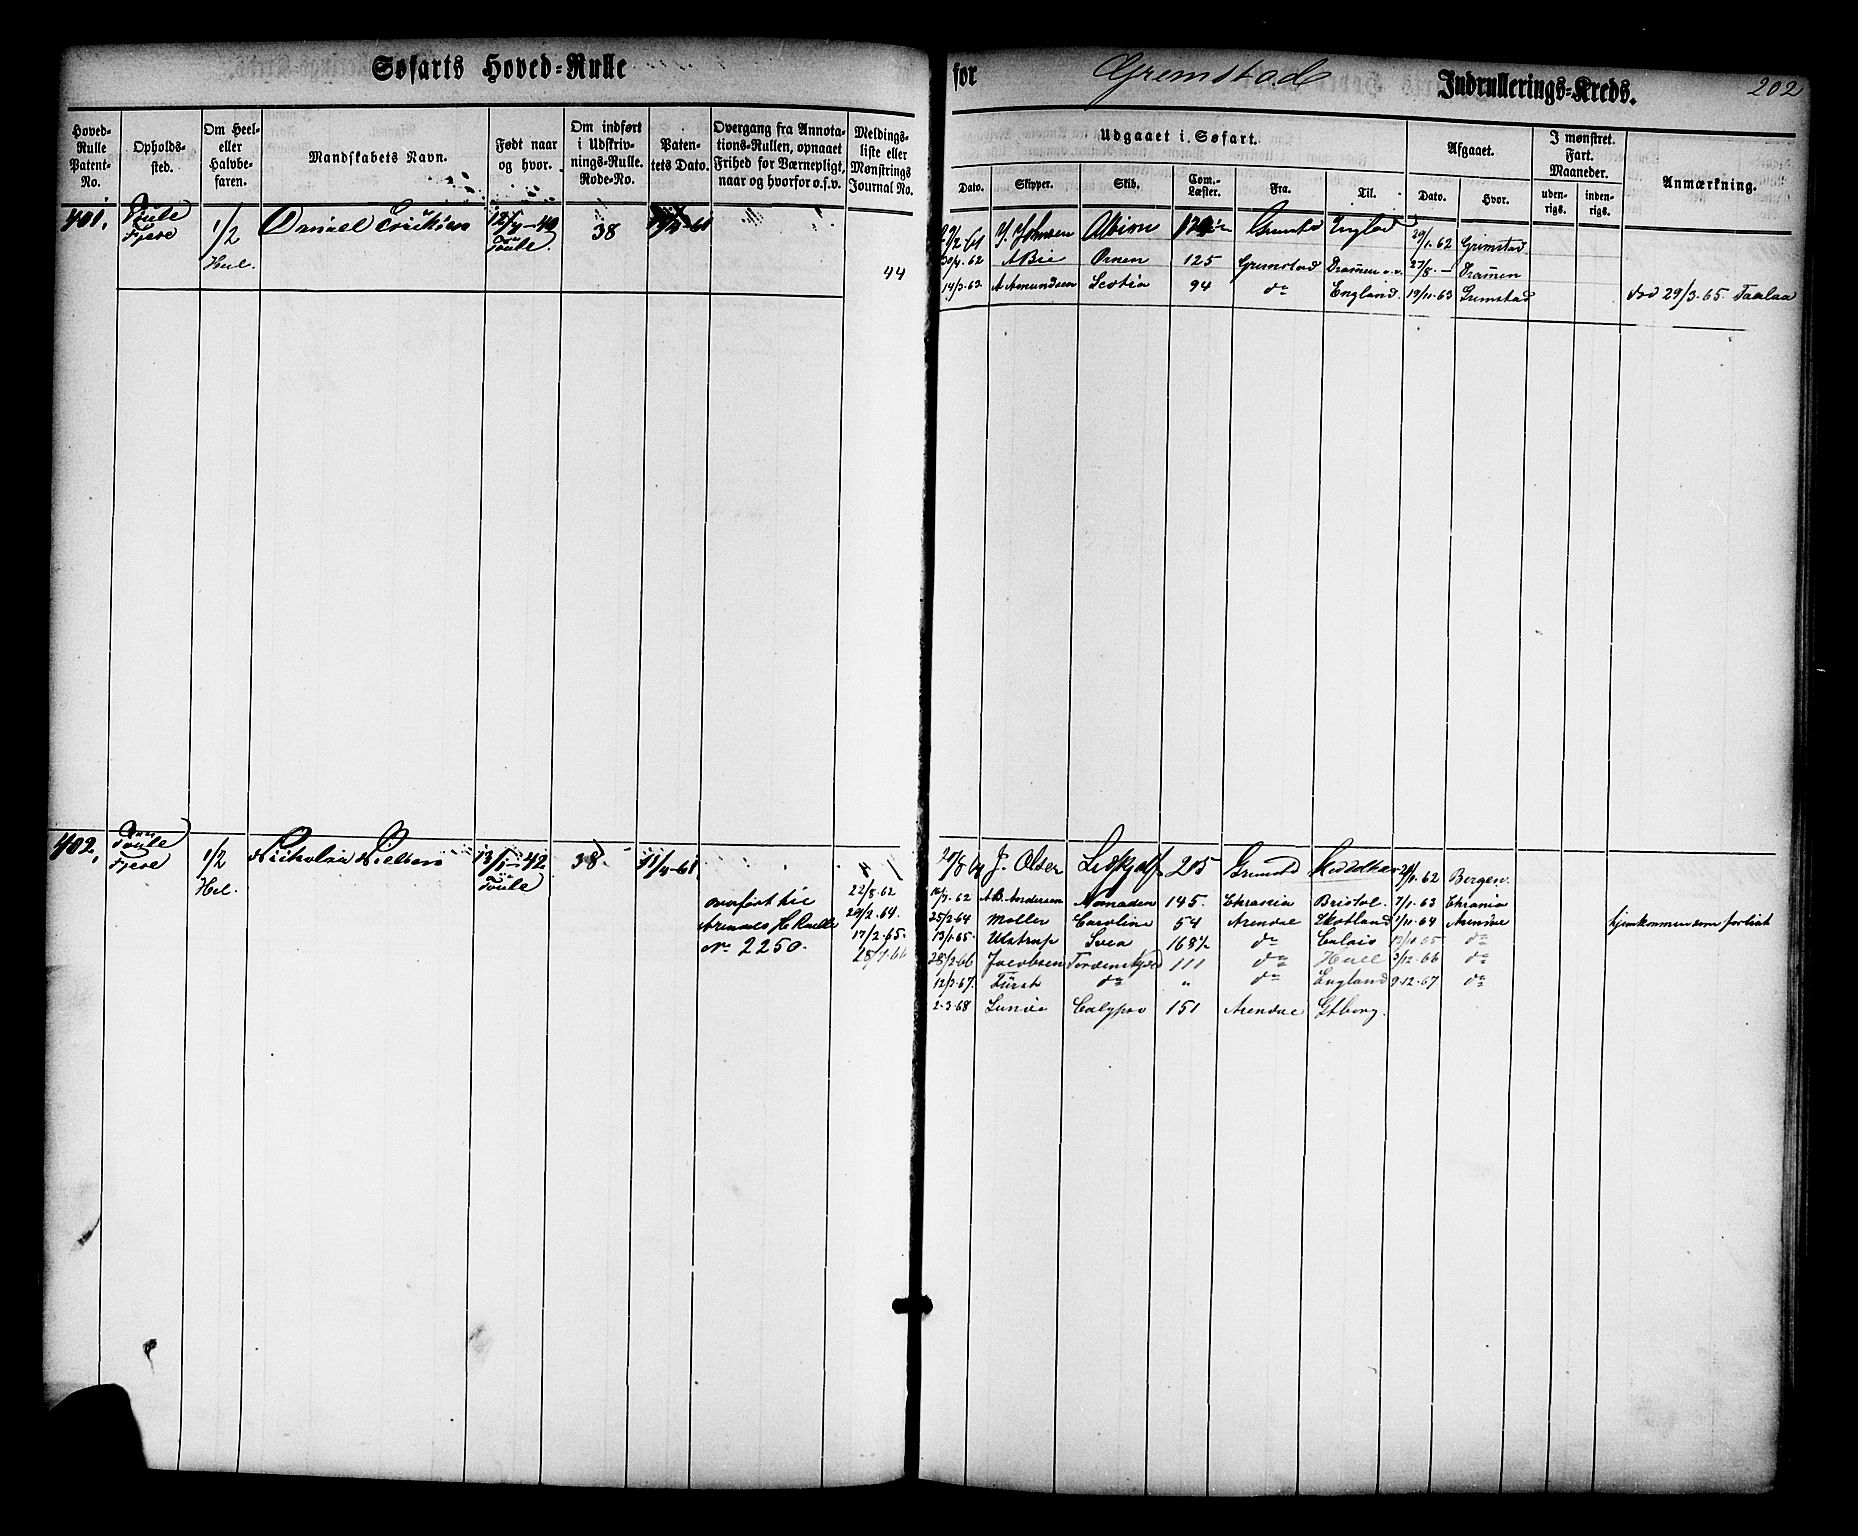 Søfarts Hoved-Rulle
for Grimstad Indrullerings-Kreds. 202
Hoved-Rulle Patent-No.
Opholds-sted.
Om Heel- eller Halvbe-faren.
Mandskabets Navn.
Født naar og hvor.
Om indført i Udskriv-nings-Rulle. Rode-No.
Paten-tets Dato.
Overgang fra Annota-tions-Rullen, opnaaet Frihed for Værnepligt, naar og hvorfor o.s.v.
Meldings-liste eller Mønstrings Journal No.
Udgaaet i Søfart.
Dato. Skipper. Skib. Com.-Læster. Fra. Til.
Afgaaet.
Dato. Hvor.
I mønstret Fart. Maaneder.
uden-rigs. inden-rigs.
Anmærkning.
401. Fjere 1/2 Daniel 38
Heel.
44
Johnsen Albion Grimstad England 29/1.62 Grimstad
30/4.62 A Bie Ørnen 125 Grimstad Dramen o.v. 27/8. — Dramen
14/3.63 A Amundsen Scotia 94 do England. 19/11.63 Grimstad
død 29/3.65
402. Fjere 1/2 Nicholai Nielsen 13/1-42 38. 11/4-61
Hel.
overført til
Arendals H. Rulle
No 2250.
22/8.62
29/2.64.
17/2.65.
28/1.66
J. Olsen 205 Grimstad 62 Bergen.
62 A.B. Andersen Nomaden 145. Chrania Bristol. 7/1.63 Chrania
25/2.64 Møller Carolina 54 Arendal Skotland 1/11.64 Arendal hjemkommen som forlist
13/1.65. Ulstrup Svea 168½ do Calais do
28/2.66 Jacobsen Tordenskjold 111 do Hull 3/12.66 do
12/3.67. Fürst do " do England 9.12.67 do
2.3.68 Calypso 151 Arendal Gtborg.